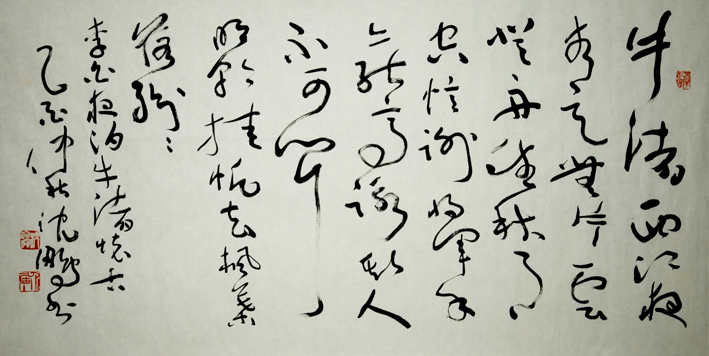 牛渚西江夜
青天無片雲
登舟望秋月
空憶謝將軍余
亦能高詠斯人
不可聞
明朝挂帆去楓葉
落紛〻
李白夜泊牛渚懷古
乙酉仲秋沈鵬書